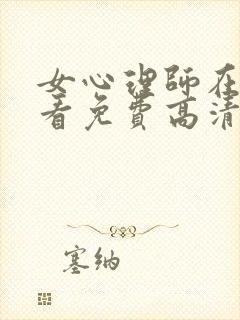 女心理師在
看免費高清
塞纳